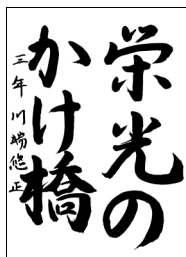 栄光の
かけ橋
三年 川端悠正